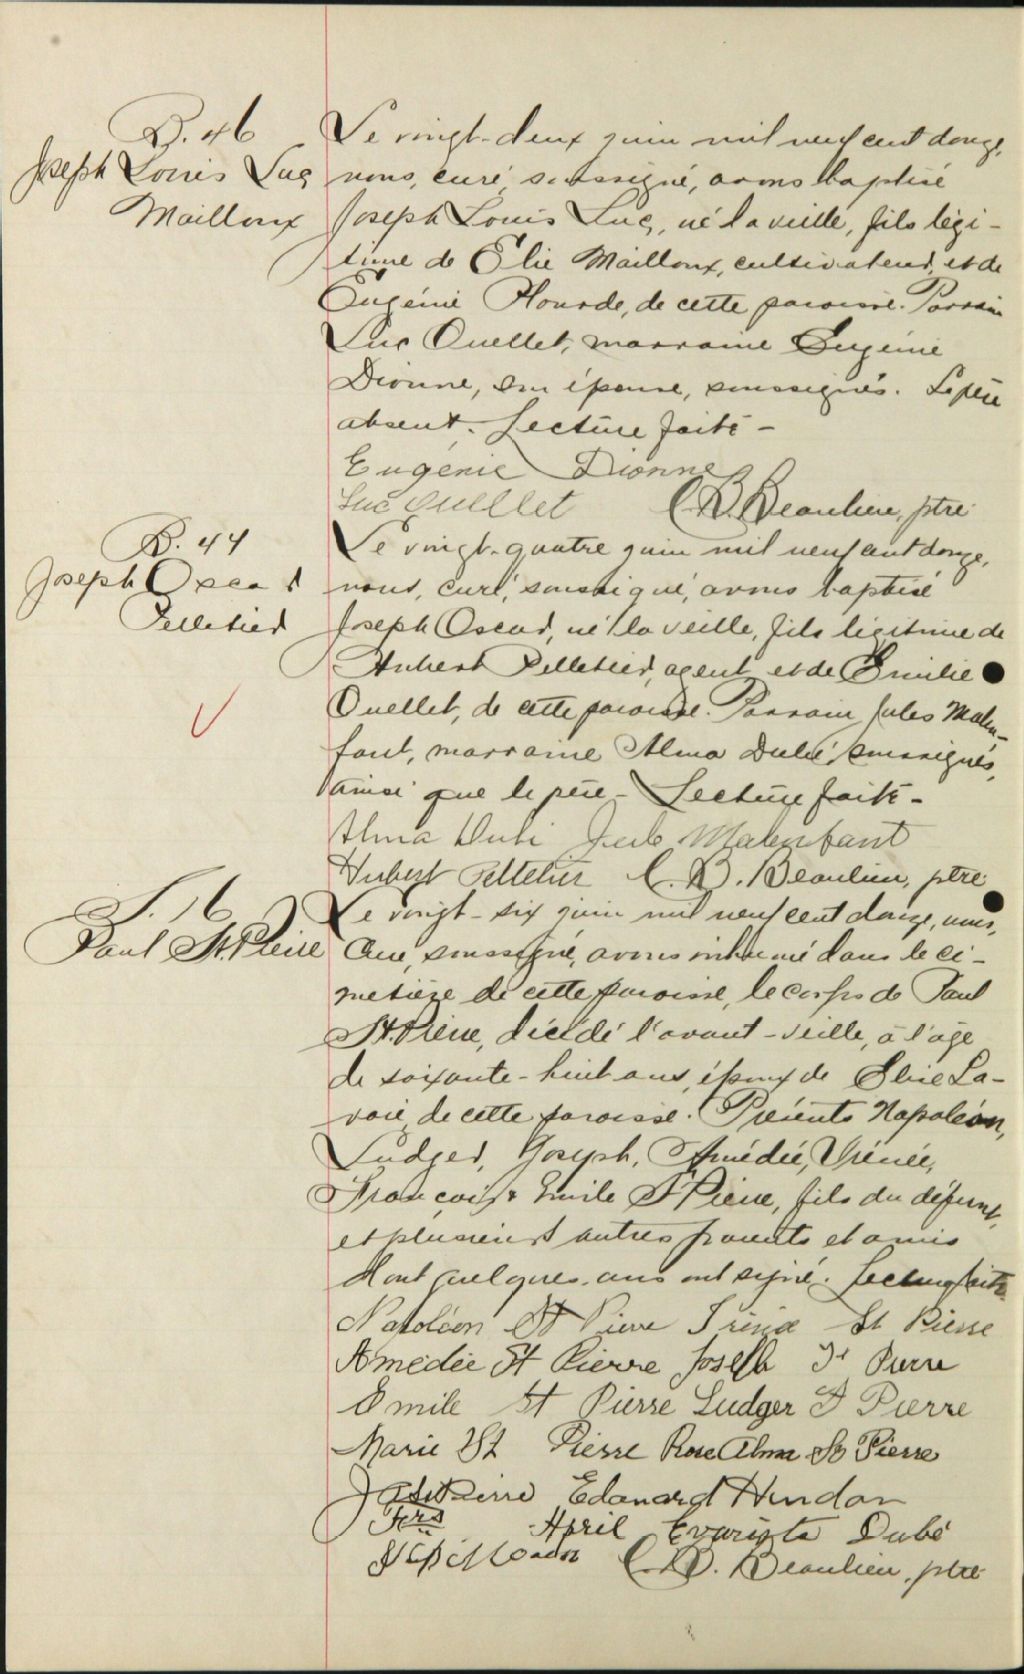 B. 46
Joseph Louis Luc
Mailloux
Le vingt-deux juin mil neuf cent douze,
nous, curé soussigné, avons baptisé
Joseph Louis Luc, né la veille, fils légi-
time de Elie Mailloux, cultivateur, et de
Eugénie Plourde, de cette paroisse. Parrain
Luc Ouellet, marraine Eugénie
Dionne, son épouse, soussignés. Le père
absent. Lecture faite -
Eugénie Dionne
Luc Ouellet C. B. Beaulieu, ptre
B. 44
Joseph Oscar
Pelletier
Le vingt-quatre juin mil neuf cent douze,
nous, curé, soussigné, avons baptisé
Joseph Oscar, né la veille, fils légitime de
Hubert Pelletier, agent et de Emilie
Ouellet, de cette paroisse. Parrain Jules Malen-
fant, marraine Alma Dubé, soussignés,
ainsi que le père - Lecture faite -
Alma Dubé Jules Malenfant
Hubert Pelletier C. B. Beaulieu, ptre
S. 16
Paul St. Pierre
Le vingt-six juin mil neuf cent douze, nous,
Curé, soussigné, avons inhumé dans le ci-
metière de cette paroisse, le corps de Paul
St. Pierre, décédé l'avant-veille, à l'âge
de soixante-huit ans, époux de Elise La-
voie, de cette paroisse. Présents Napoléon,
Ludger, Joseph, Amédée, Irénée,
François & Emile St Pierre, fils du défunt,
et plusieurs autres parents et amis
dont quelques-uns ont signé. Lecture faite
Napoléon St Pierre Irénée St Pierre
Amédée St Pierre Joseph St Pierre
Emile St Pierre Ludger St Pierre
Marie St Pierre Rose Alma St Pierre
St Pierre Edouard Hudon
April Evariste Dubé
C. B. Beaulieu, ptre